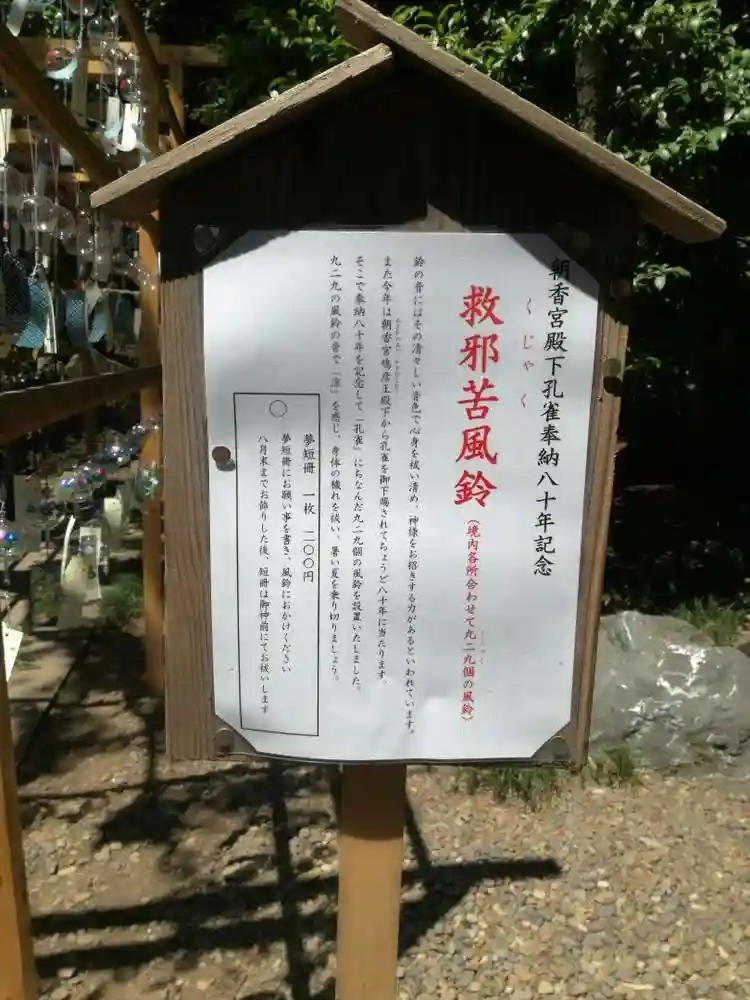 朝香宮殿下孔雀奉納八十年記念
くじゃく
救邪苦風鈴
（境内各所合わせて九二九個の風鈴）
鈴の音にはその清々しい音色で心身を祓い清め、神様をお招きする力があるといわれています。
また今年は朝香宮鳩彦王殿下から孔雀を御下賜されてちょうど八十年に当たります。
そこで奉納八十年を記念して「孔雀」にちなんだ九二九個の風鈴を設置いたしました。
九二九の風鈴の音で「涼」を感じ、身体の穢れを祓い、暑い夏を乗り切りましょう。
夢短冊　一枚　二〇〇円
夢短冊にお願い事を書き、風鈴におかけください
八月末までお飾りした後、短冊は御神前にてお祓いします